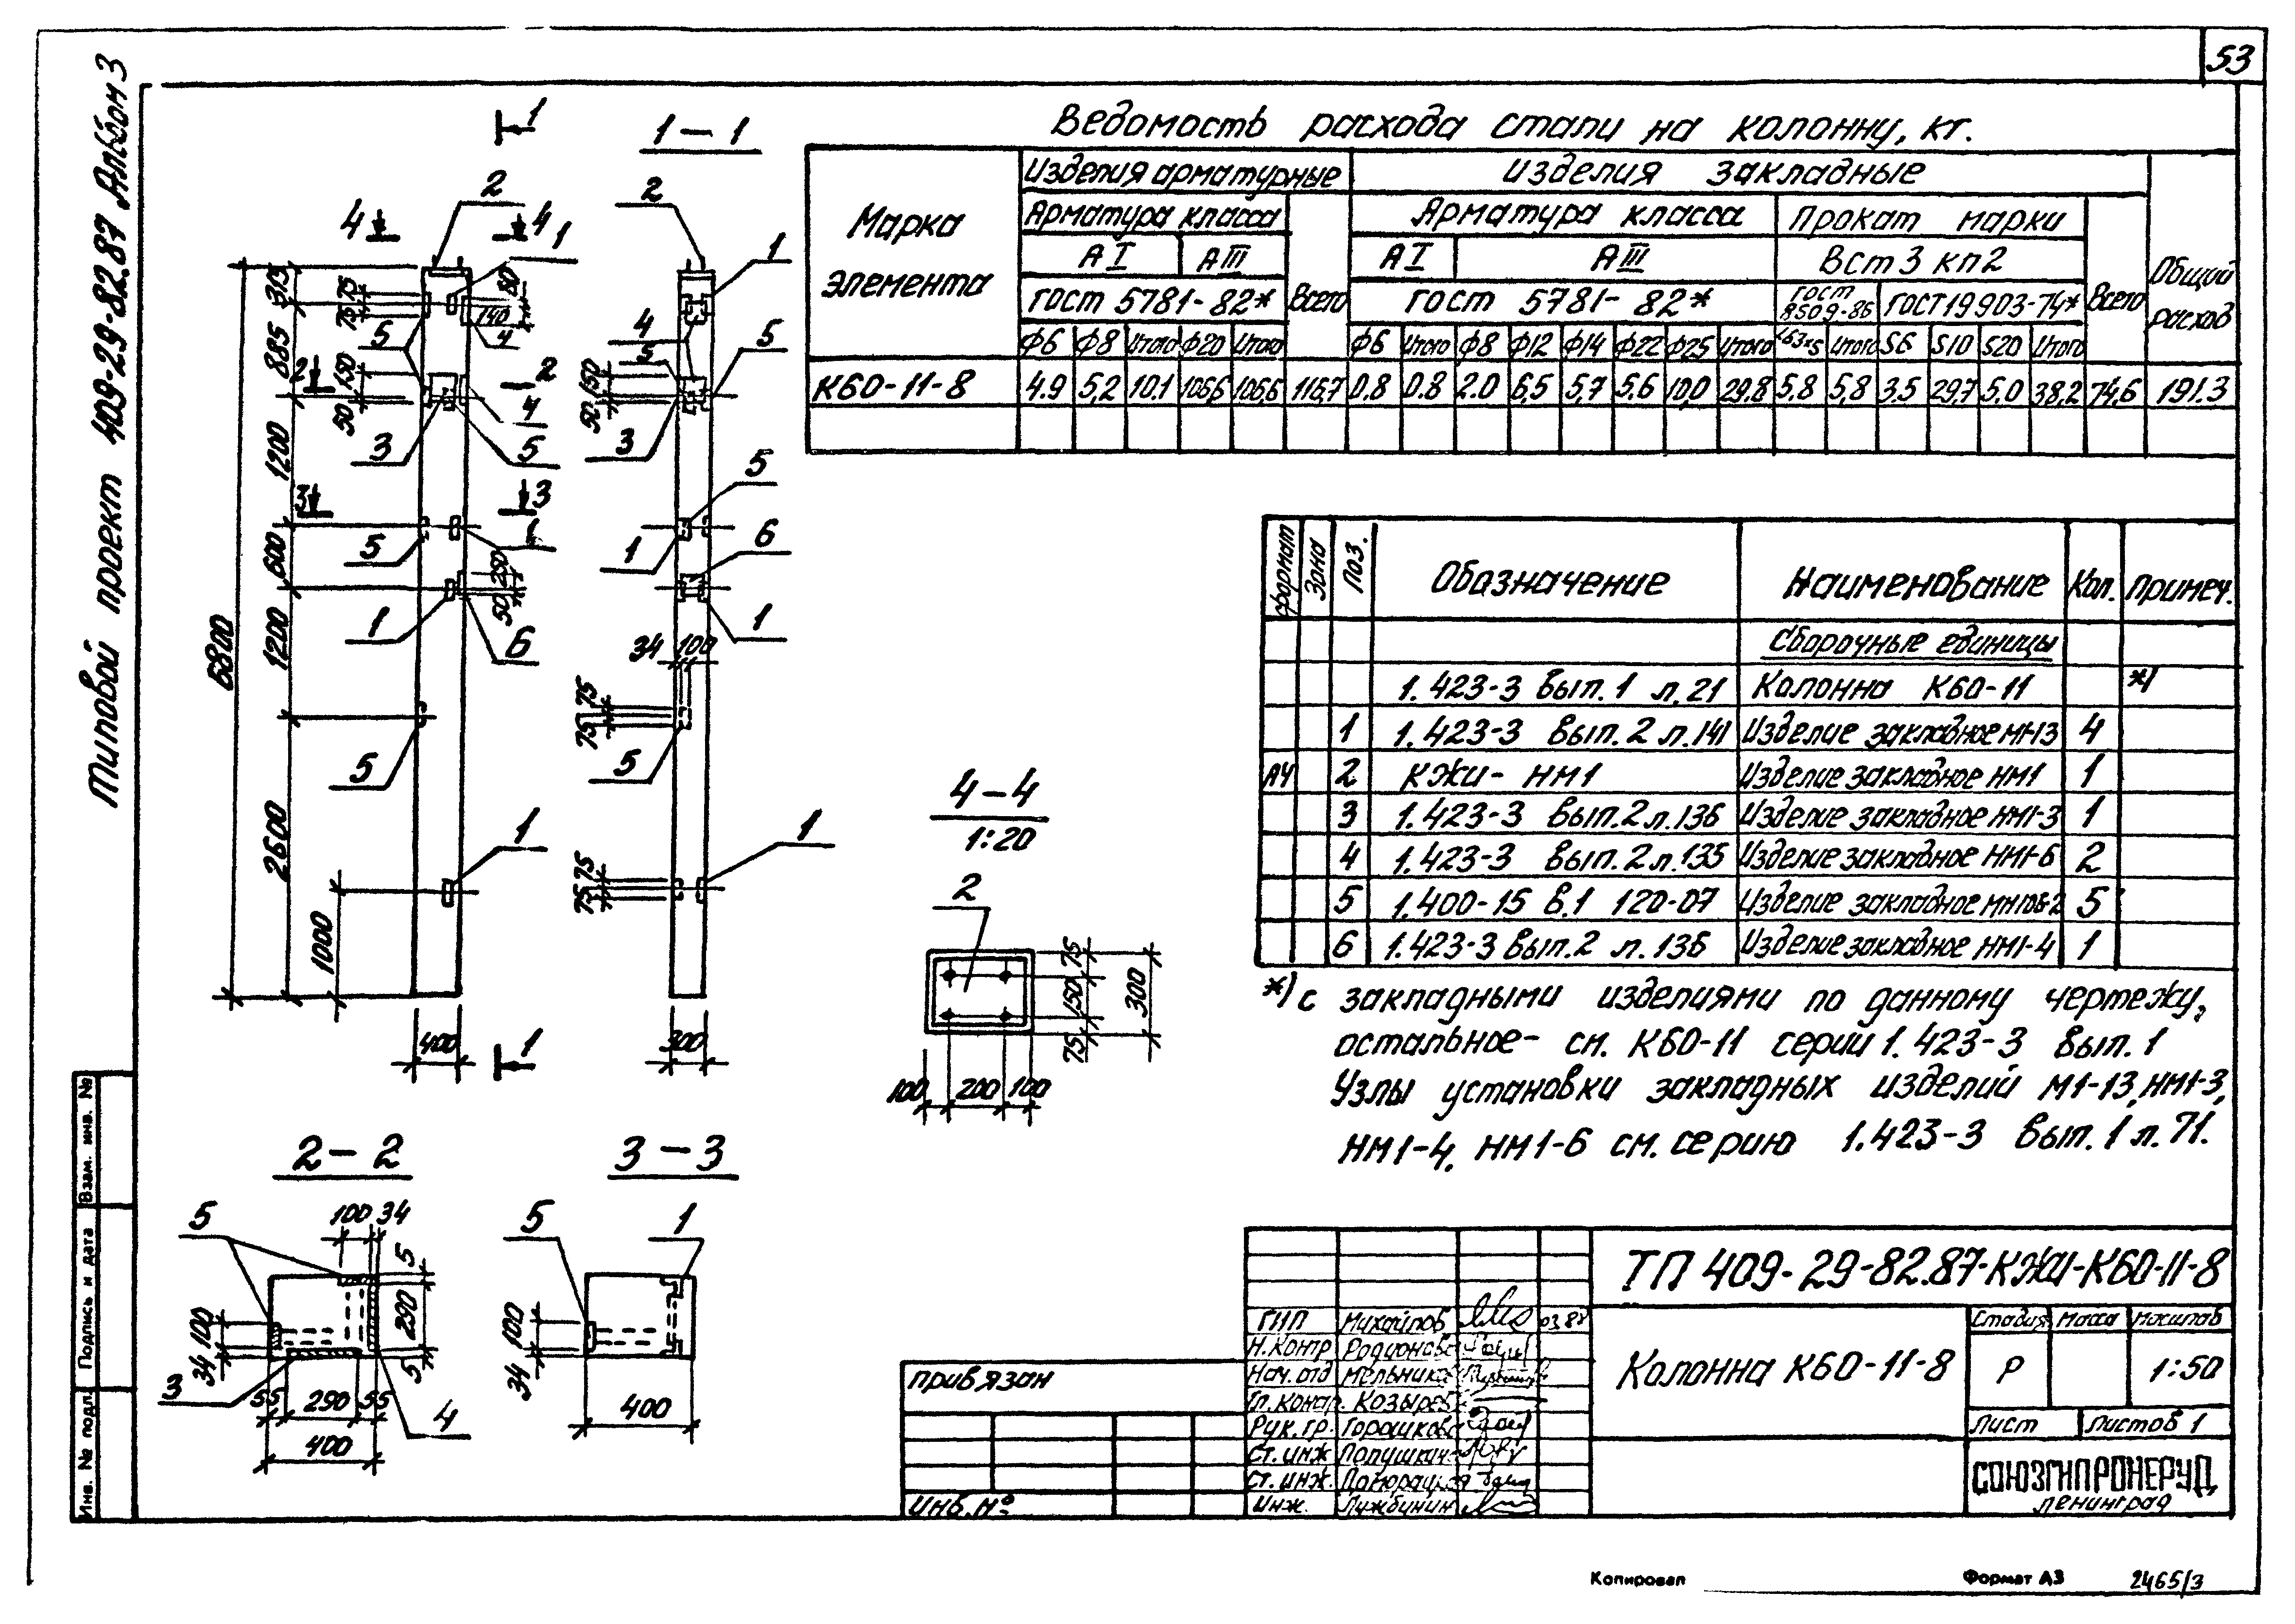 53
Типовой проект 409-29-82.87 Альбом 3
Ведомость расхода стали на колонну, кг.
Марка элемента
Изделия арматурные
Изделия закладные
Общий расход
Арматура класса
Всего
Арматура класса
Прокат марки
Всего
АI
АIII
АI
АIII
Вст3 кп2
ГОСТ 5781-82*
ГОСТ 5781-82*
ГОСТ 8509-86
ГОСТ 19903-74*
ф6 ф8 Итого ф20 Итого ф6 Итого ф8 ф12 ф14 ф22 ф25 Итого L63×5 Итого S6 S10 S20 Итого
К60-11-8 4.9 5,2 10.1 106,6 106,6 116,7 0.8 0.8 2.0 6,5 5,7 5.6 10,0 29.8 5,8 5,8 3.5 29,7 5.0 38,2 74,6 191.3
1
1-1
2
2
4
4
1
1
315
75
75
80
140
4
5
4
5
5
885
2
150
50
2
4
3
5
150
50
3
1200
3
3
5
1
5
1
6
600
250
50
1
6
1
1200
34
100
6800
75
75
5
5
2600
1
1
75
75
1000
400
300
1
4-4
1:20
2
75
150
75
300
100
200
100
формат Зона Поз. Обозначение Наименование Кол. Примеч.
Сборочные единицы
1.423-3 вып.1 л.21 Колонна К60-11 *)
1 1.423-3 вып.2 л.141 Изделие закладное М1-13 4
А4 2 КЖИ-НМ1 Изделие закладное НМ1 1
3 1.423-3 вып.2 л.136 Изделие закладное НМ1-3 1
4 1.423-3 вып.2 л.135 Изделие закладное НМ1-6 2
5 1.400-15 в.1 120-07 Изделие закладное 5
6 1.423-3 вып.2 л.136 Изделие закладное НМ1-4 1
*) с закладными изделиями по данному чертежу,
остальное- см. К60-11 серии 1.423-3 вып.1
Узлы установки закладных изделий М1-13, НМ1-3,
НМ1-4, НМ1-6 см. серию 1.423-3 вып.1 л.71.
2-2
5
100
34
5
290
5
100
34
3
55
290
55
4
400
3-3
5
1
100
34
400
Взам. инв. №
Подпись и дата
Инв. № подл.
привязан
инв.№
ГИП Михайлов 03.87
Н.контр Родионова
Нач.отд Мельников
Гл.констр. Козырев
Рук.гр. Горошкова
Ст.инж
Ст.инж.
Инж. Лужбинин
ТП 409-29-82.87-КЖИ-К60-11-8
Колонна К60-11-8
Стадия Масса Масштаб
Р 1:50
Лист Листов 1
СОЮЗГИПРОНЕРУД
Ленинград
Копировал
Формат А3
2465/3